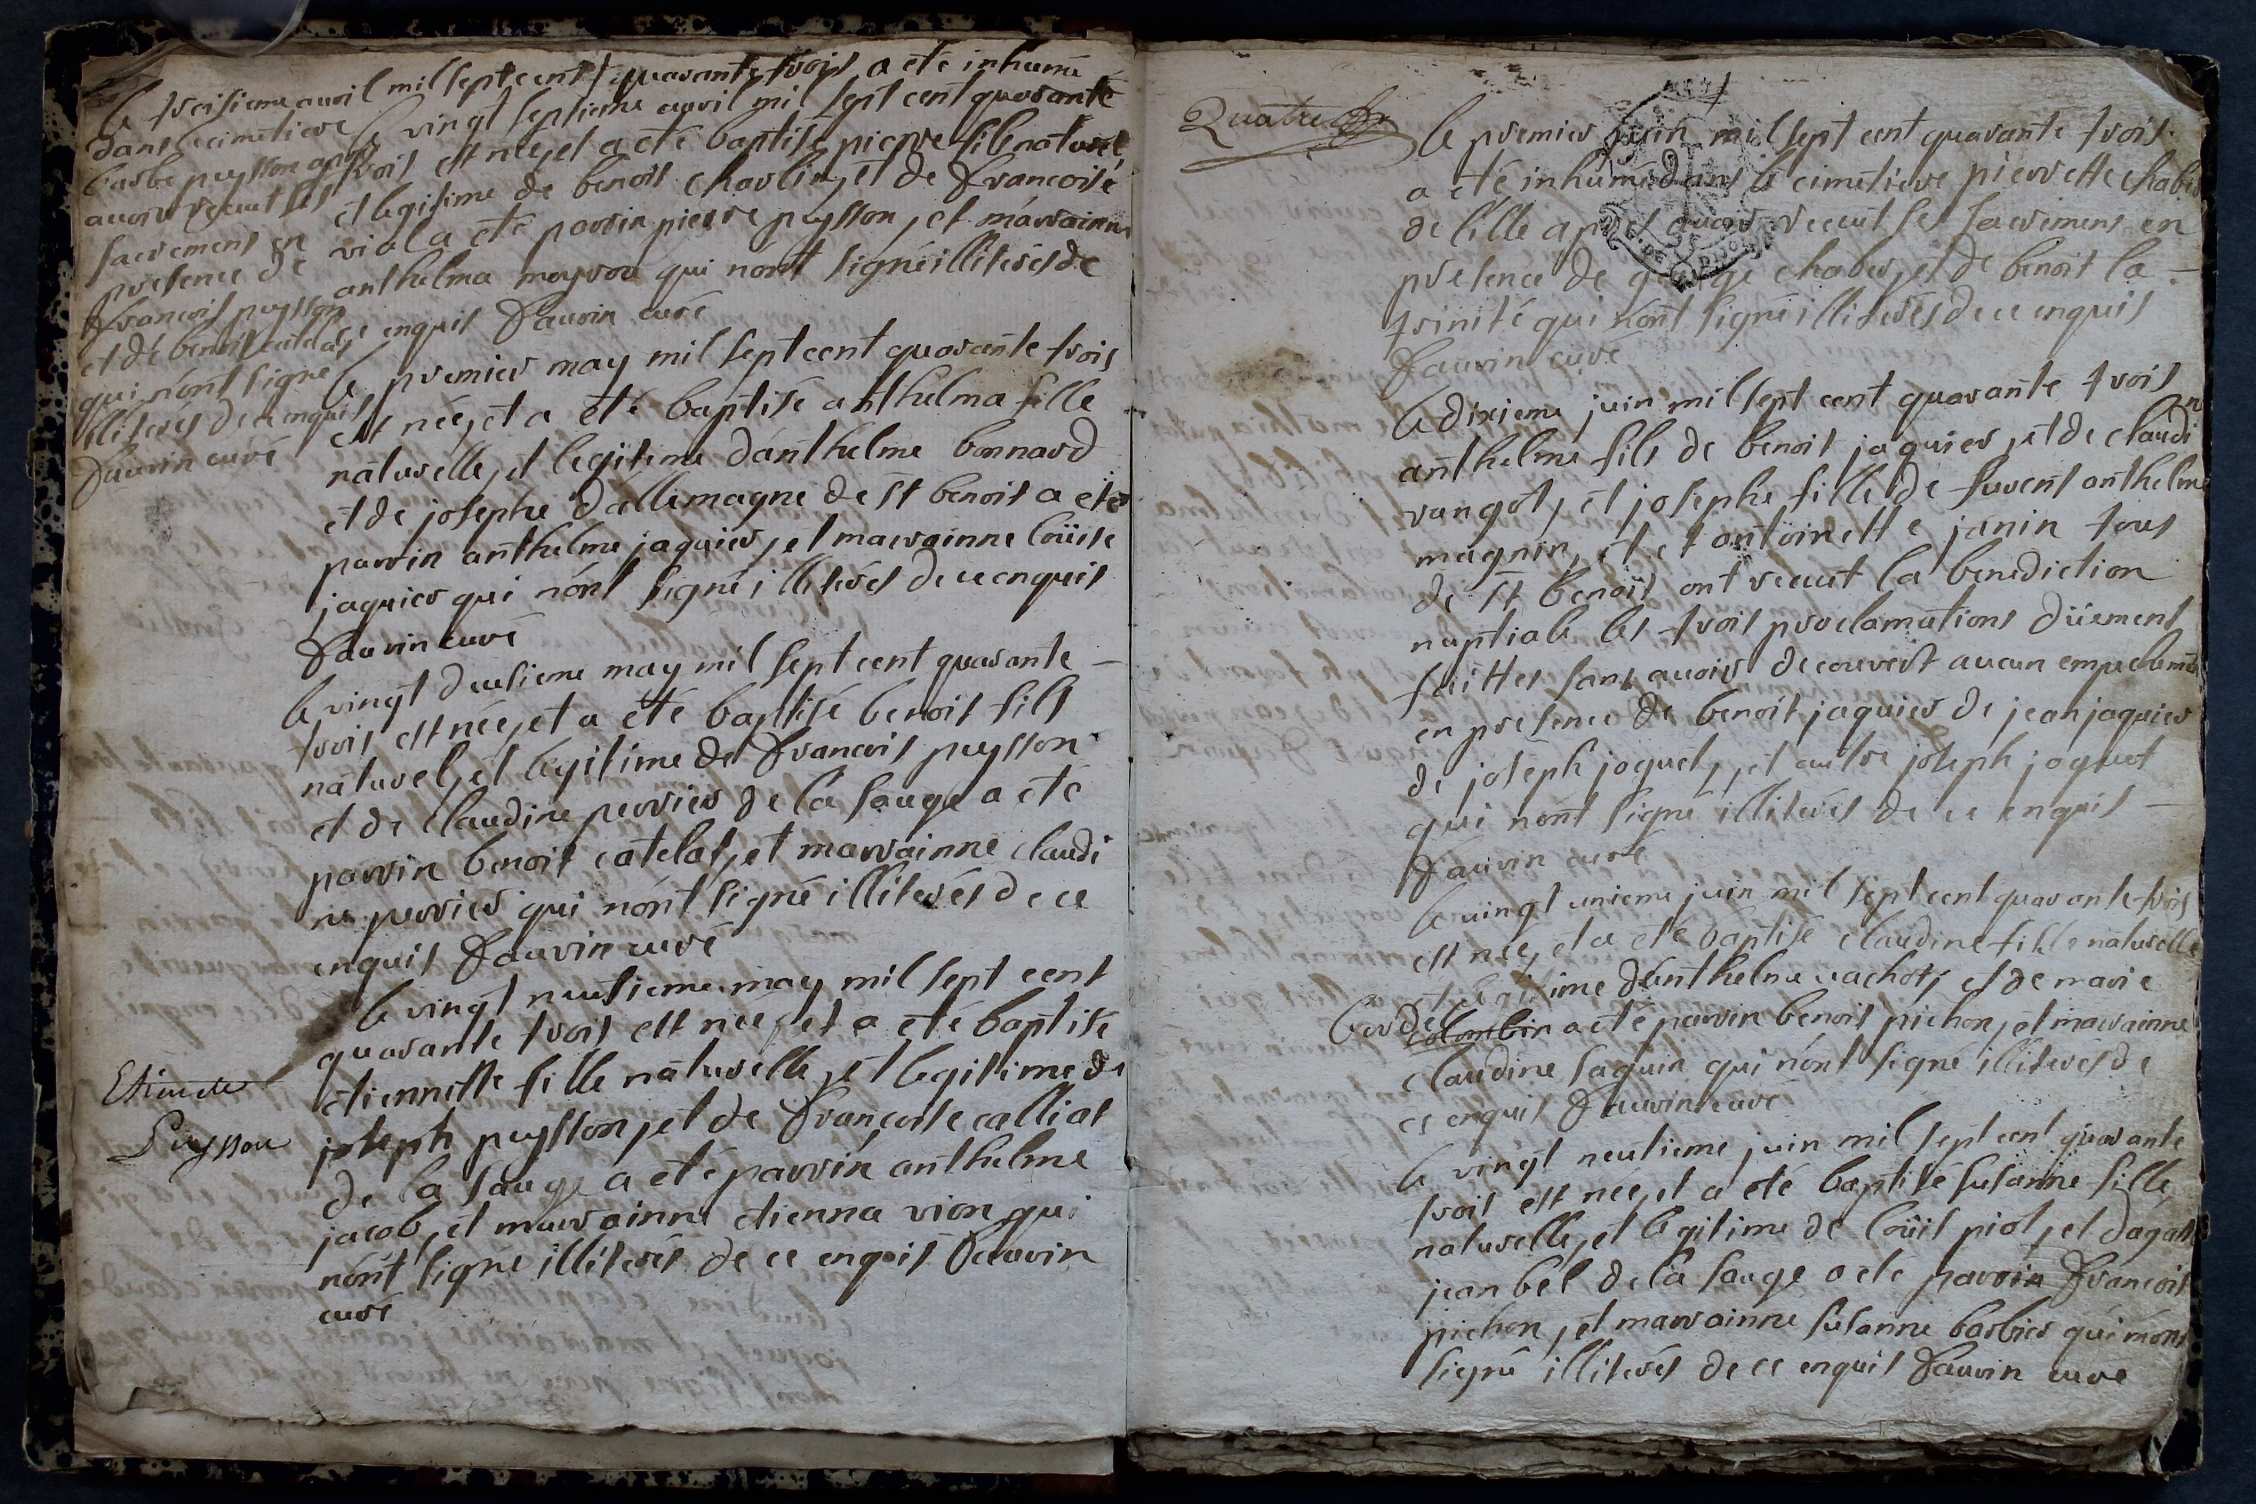 le treisieme avril mil sept cent quarante trois a eté inhumé
dans le cimetiere
barbe puysson apres
avoir receut ses
sacremens en
presence de
francois puysson
et de benoit catelas
qui nónt signé
illiterés de ce enquis
Fauvin curé
le vingt septieme avril mil sept cent quarante
trois est né, et a eté baptisé pierre fils naturel,
et legitime de benoit charlin, et de francoise
viola a eté parrin pierre puysson, et marrainne
anthelma mayrou qui nónt signé illiterés de
ce enquis Fauvin curé
le premier may mil sept cent quarante trois
est née, et a eté baptisé anthelma fille
naturelle, et legitime dánthelme bonnard
et de josephe dállemagne de st benoit a eté
parrin anthelme jaquier, et marrainne loüise
jaquier qui nónt signé illiterés de ce enquis
Fauvin curé
le vingt deusieme may mil sept cent quarante
trois est née, et a eté baptisé benoit fils
naturel, et legitime de francois puysson
et de claudine perrier de la sauge a eté
parrin benoit catelas, et marrainne claudi
ne perrier qui nónt signé illiterés de ce
enquis Fauvin curé
le vingt neufieme may mil sept cent
quarante trois est née, et a eté baptisé
etiennette fille naturelle, et legitime de
joseph puysson, et de francoise callias
de la sauge a eté parrin anthelme
jacob, et marrainne etienna vion qui
nónt signé illiterés de ce enquis Fauvin
curé
Puysson
Quatre
le premier juin mil sept cent quarante trois
a eté inhumé dans le cimetiere pierrette chaber
de lille apres avoir receut ses sacremens en
presence de george chaber, et de benoit la
trinité qui nónt signé illiterés de ce enquis
Fauvin curé
le dixieme juin mil sept cent quarante trois
anthelme fils de benoit jaquier, et de claudin
vangot, et josephe fille de fuvent anthelme
magnin, et et antoinette janin tous
de st benoit ont receut la benediction
nuptiale les trois proclamations düement
faittes sans avoir decouvert aucun empechemen
en presence de benoit jaquier de jean jaquier
de joseph joquet, et autre joseph joquet
qui nónt signé illiterés de ce enquis
Fauvin curé
le vingt unieme juin mil sept cent quarante trois
est née, et a eté baptisé claudine fille naturelle
et legitime dánthelme vachot, et de marie
bordel colombin a eté parrin benoit pichon, et marrainne
claudine saquin qui nónt signé illiterés de
ce enquis Fauvin curé
le vingt neufieme juin mil sept cent quarante
trois est née, et a eté baptisé susanne fille
naturelle, et legitime de loüis piot, et dagath
jean bel de la sauge a eté parrin francois
pichon, et marrainne susanne barbier qui nónt
signé illiterés de ce enquis Fauvin curé